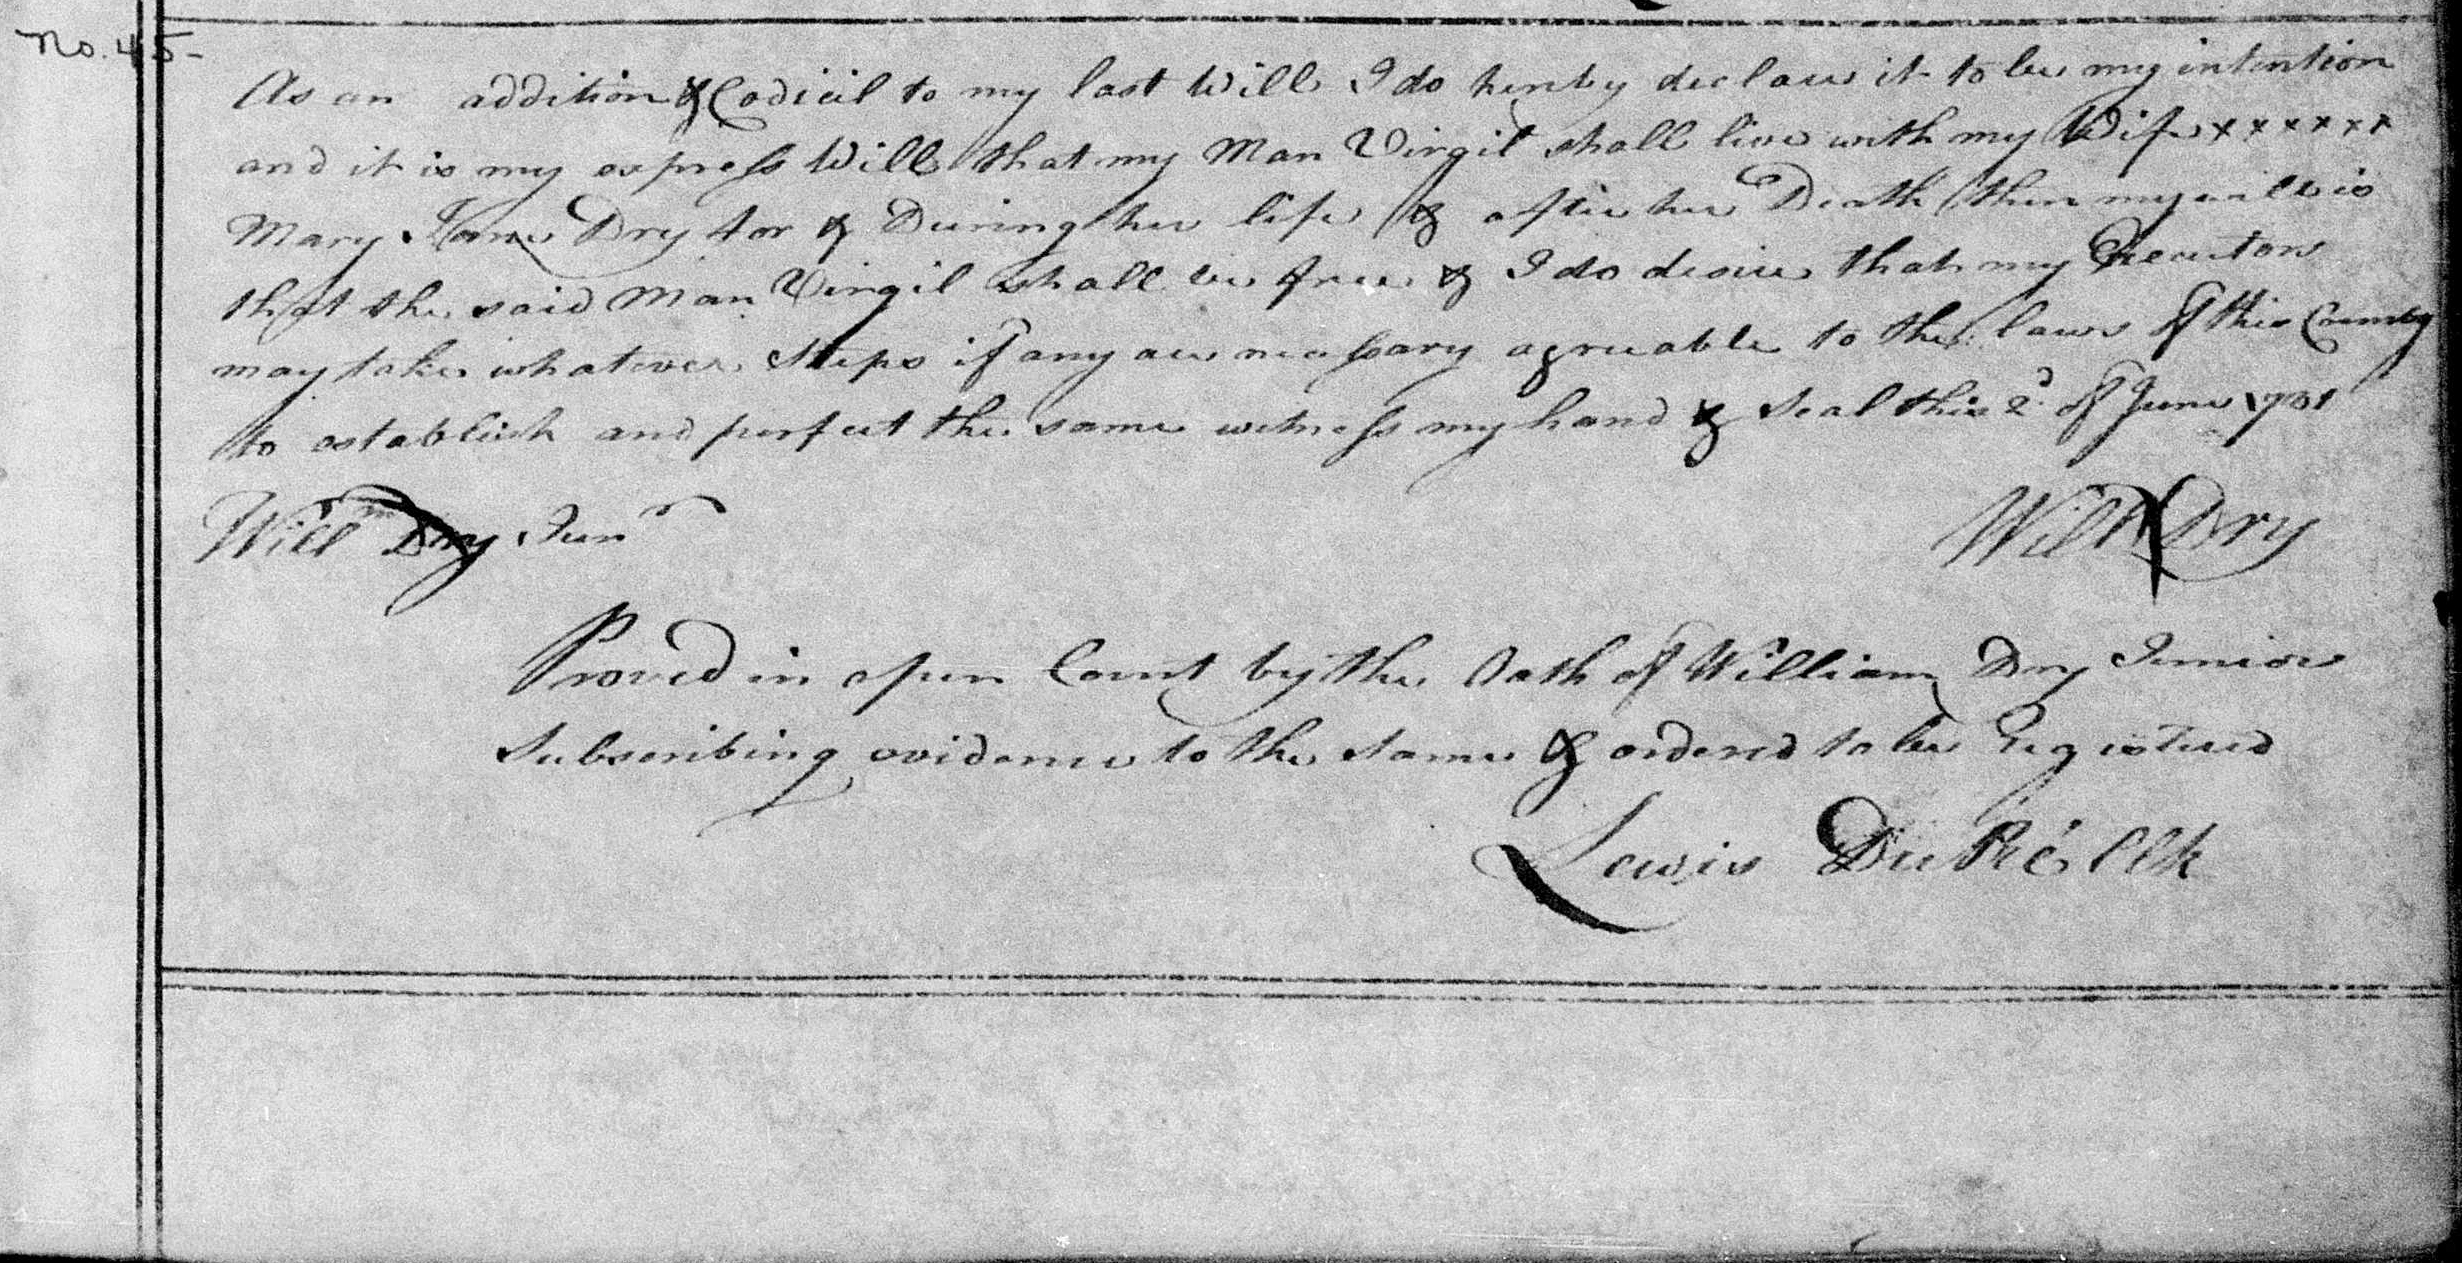 No. 45-
As an addition & Codicil to my last Will I do hereby declare it to be my intention
and it is my express Will that my Man Virgil shall live with my Wife x x x x x x
Mary Jane Dry for & During her life & after her Death then my will is
that the said Man Virgil shall be free & I do desire that my Executors
may take whatever Steps if any are necessary agreable to the laws of this Country
to establish and perfect the same witness my hand & Seal this 2d of June 1781
Willm Dry Junr
Will Dry
Proved in open Court by the Oath of William Dry Junior
Subscribing evidence to the same & ordered to be Registered
Lewis DuRé Clk